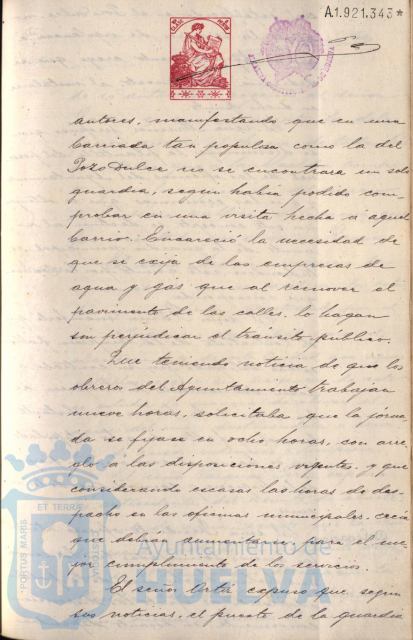 A.1.921.343*
autores, manifestando que en una
barriada tan populosa como la del
Pozo Dulce no se encontrara un solo
guardia, segun habia podido com-
probar en una visita hecha a aquel
barrio. Encareció la necesidad de
que se exija de las empresas de
agua y gas que al remover el
pavimento de las calles, lo hagan
sin perjudicar el tránsito público.
Que teniendo noticia de que los
obreros del Ayuntamiento trabajan
nueve horas, solicitaba que la jorna-
da se fijase en ocho horas, con arre-
glo a las disposiciones vigentes, y que
considerando escasas las horas de des-
pacho en las oficinas municipales, creia
que debian aumentarse, para el me-
jor cumplimiento de los servicios.
El señor Ortiz expuso que segun
sus noticias, el puesto de la guardia
PORTUS MARIS ET TERRAE CUSTODIA
Ayuntamiento de
HUELVA